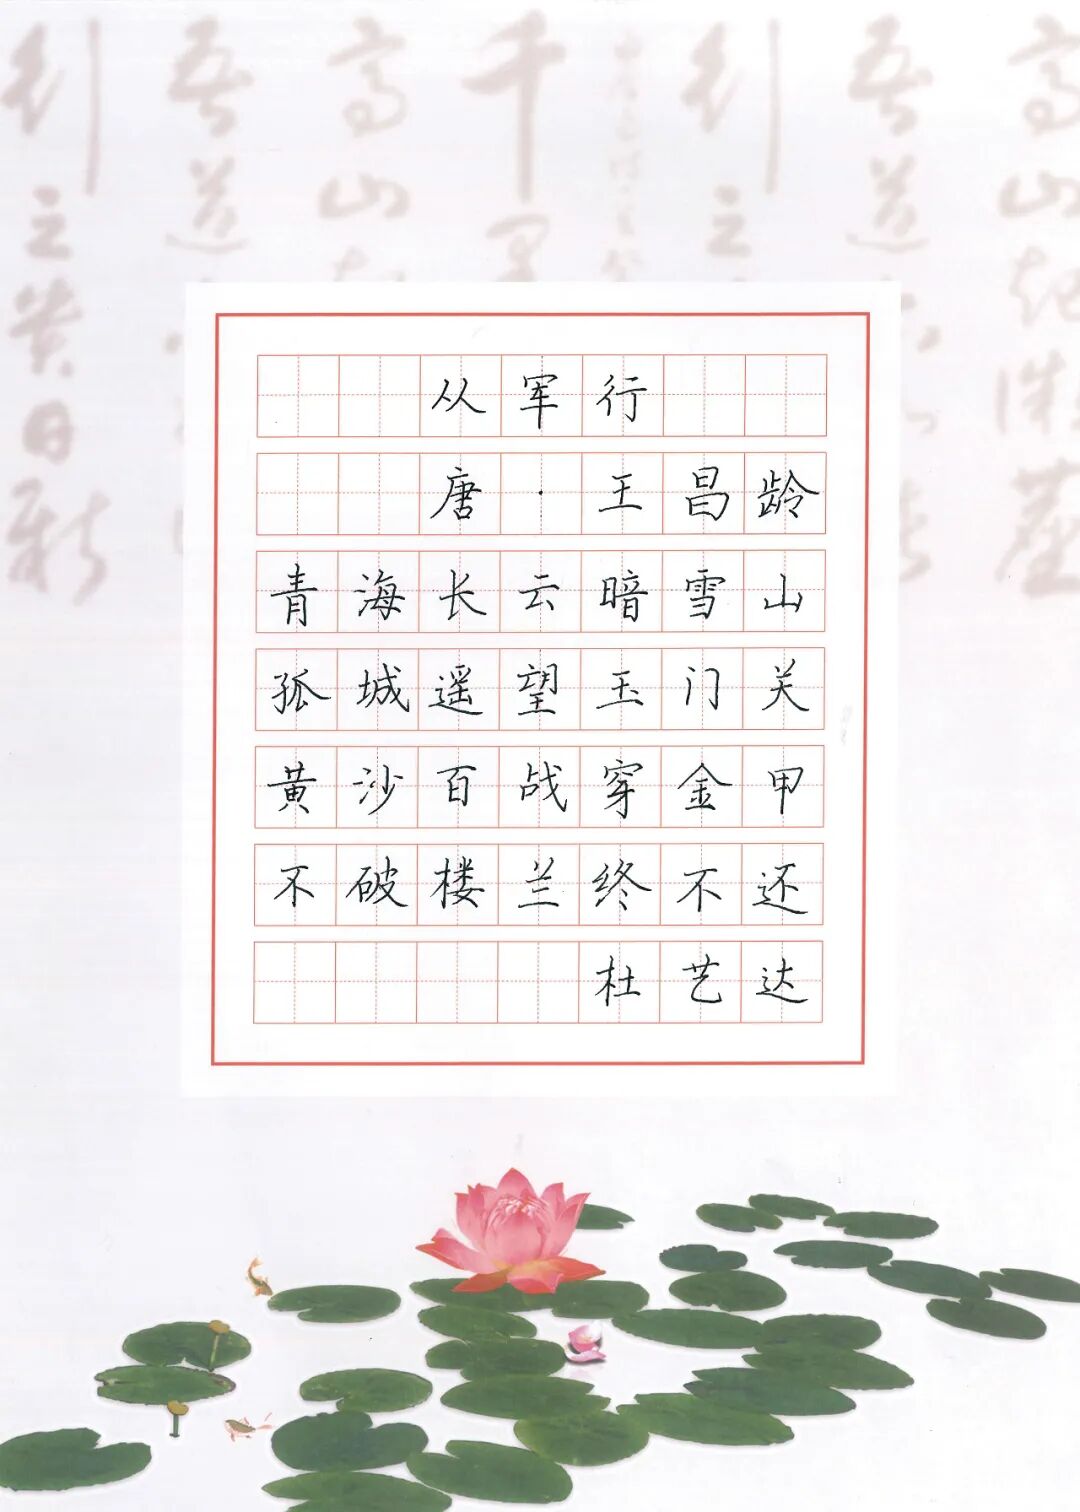 从军行
唐·王昌龄
青海长云暗雪山
孤城遥望玉门关
黄沙百战穿金甲
不破楼兰终不还
杜艺达